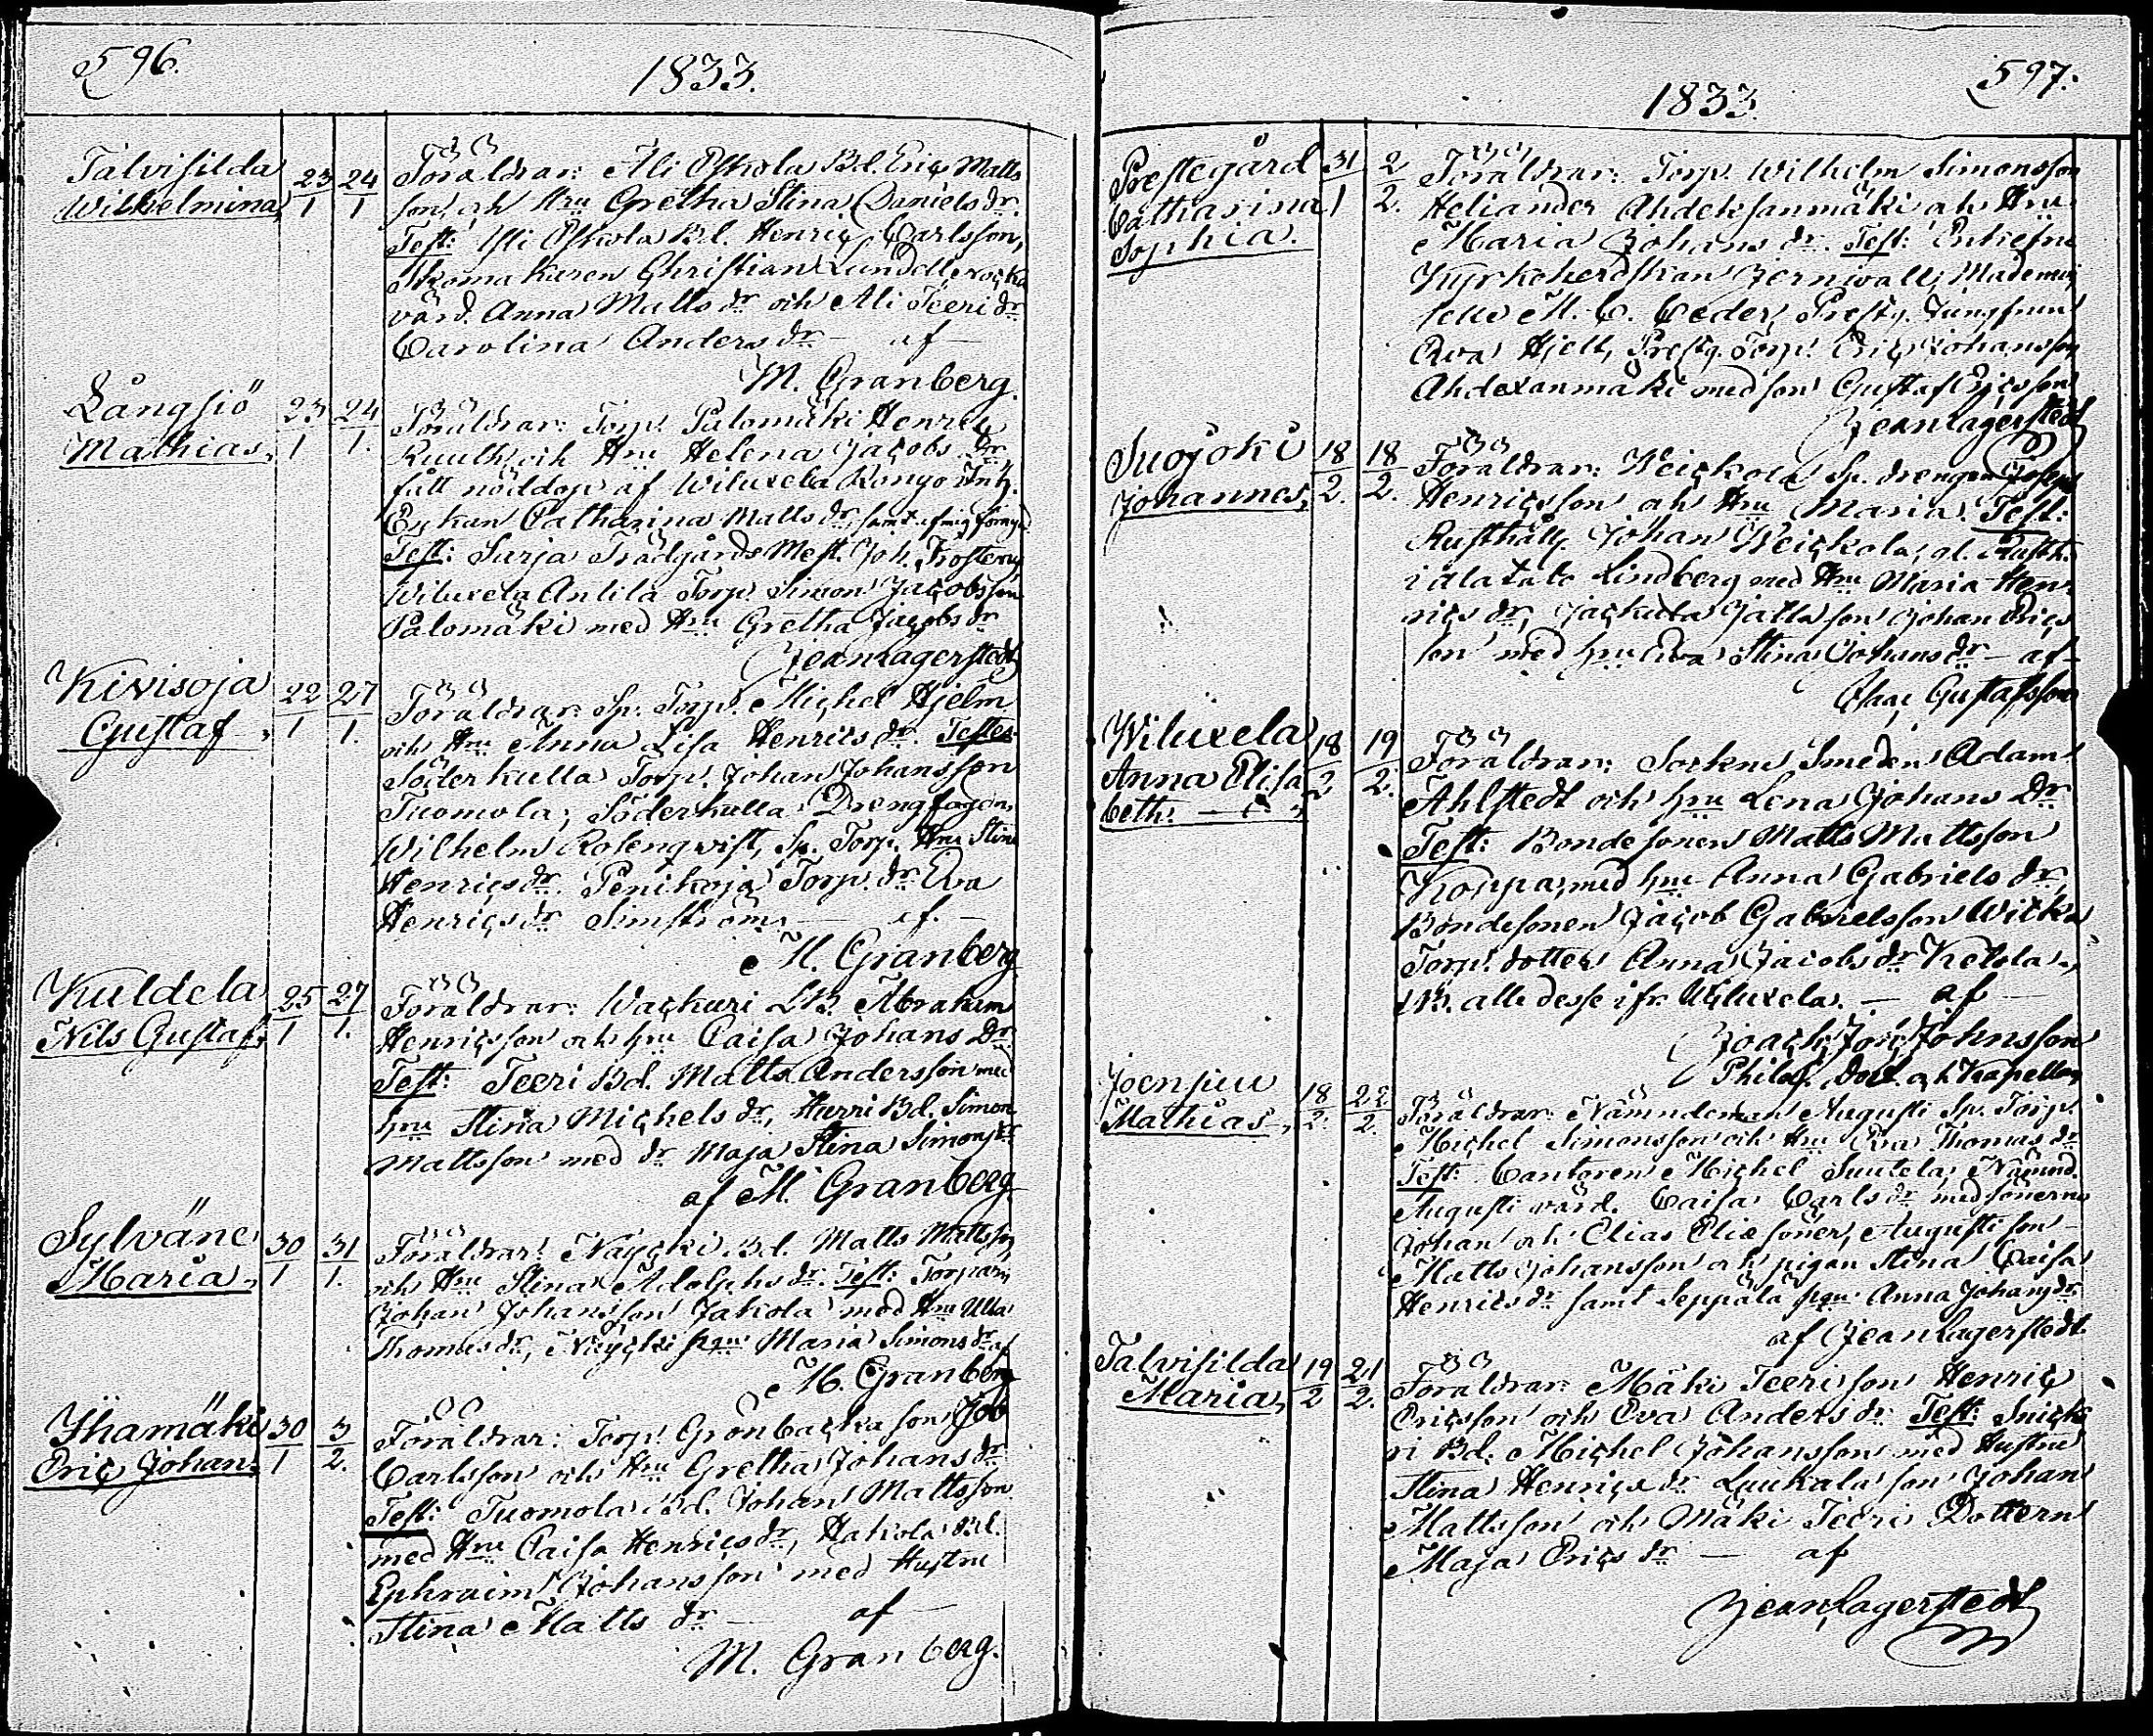 596.
1833.
Talvisilda
Wilhelmina
23/1 24/1
Föräldrar: Ali Oskola Bd. Eric Matts
son, och Hru Gretha Stina Danielsdr.
Test: Yli Oskola Bd. Henric Carlsson,
Skomakaren Christian Lundell,
värd. Anna Mattsdr och Ali Teeri dr
Carolina Andersdr — af —
M. Granberg.
Långsiö
Mathias,
23/1 24/1.
Föräldrar: Torp. Palomäki Henric
Ruuth och Hru Helena Jacobs Dr
fått nöddop af Wiluxela Konyo Inh.
Enkan Catharina Mattsdr, samt af mig
Test: Sarja Trädgårds Mest. Joh.
Wiluxela Antila Torp. Simon Jacobsson
Palomäki med Hru Gretha Jacobsdr
Jean Lagerstedt
Kivisoja
Gustaf,
22/1 27/1.
Föräldrar: Sp. Torp. Michel Hjelm
och Hru Anna Lisa Henricsdr. Testes
Söderkulla Torp. Johan Johansson
Tuomola, Söderkulla Drengfogden
Wilhelm Rosenqvist, Sp. Torp. Hru Stina
Henricsdr. Penikoja Torp. dr Eva
Henricsdr Simström, — af. —
M. Granberg
Kuldela
Nils Gustaf,
25/1 27/1.
Föräldrar: Wackuri LB. Abraham
Henricsson och hru Caisa Johans Dr
Test: Teeri Bd. Matts Andersson med
hru Stina Michelsdr, Hurri Bd. Simon
Mattsson med dr Maja Stina Simonsdr
af M. Granberg
Sylväne
Maria,
30/1 31/1.
Föräldrar: Näycki Bd. Matts Mattsson
och Hru Stina Adolphsdr. Test: Torparen
Johan Johansson Jakola med Hru Ulla
Thomasdr, Näycki pgn Maria Simonsdr af
M. Granberg
Yhamäki
Eric Johan,
30/1 3/2.
Föräldrar: Torp. Grönbacka son Job
Carlsson och Hru Gretha Johansdr
Test: Tuomola Bd. Johan Mattsson
med Hru Caisa Henricsdr, Hakola Bd.
Ephraim Johansson med Hustru
Stina Matts dr — af —
M. Granberg.
597.
1833.
Prestegård
Catharina
Sophia.
31/1 2/2.
Föräldrar: Torp. Wilhelm Simonsson
Heliander Ahdeksanmäki och Hru
Maria Johansdr. Test: Enkefru
Kyrkoherdskan Jernwall, Mademoi
selle M. C. Ceder, Prestg. Jungfrun
Eva Hjelt, Prestg. Torp. Eric Johansson
Ahdexanmäki med son Gustaf Ericsson
Jean Lagerstedt
Suojoki
Johannes,
18/2. 18/2.
Föräldrar: Weickola Sp. drengen Joseph
Henricsson och Hru Maria. Test:
Rusthåll. Johan Weickola, gl. Rusth.
Lindberg med Hru Maria Hen
ricsdr, Jackula Jalla son Johan Erics
son med hru Eva Stina Johansdr — af —
Isaac Gustafsson
Wiluxela
Anna Elisa
beth. —
18/2 19/2.
Föräldrar: Sockne Smeden Adam
Ahlstedt och hru Lena Johans Dr
Test: Bondesonen Matts Mattsson
Koppa, med hru Anna Gabrielsdr,
Bondesonen Jacob Gabrielsson Wicka
Torp. dotter Anna Jacobsdr Ketola,
NB. alla desse ifr. Wiluxela. — af —
Joach. Johnsson
Philos. Doct. och Kapellan
Joensuu
Mathias,
18/2. 22/2.
Föräldrar: Nämndeman Augusti Sp. Torp.
Michel Simonsson och Hru Eva Thomasdr
Test: Cantoren Michel Suutela, Nämnd.
Augusti värd. Caisa Carlsdr med sönerne
Johan och Elias Elie söner, Augusti son
Matts Johansson och pigan Stina Caisa
Henricsdr samt Seppälä pgn Anna Johansdr
af Jean Lagerstedt
Talvisilda
Maria,
19/2 21/2.
Föräldrar: Mäki Teeri son Henric
Ericsson och Eva Andersdr. Test: Snicke
ri Bd. Michel Johansson med Hustru
Stina Henricsdr Luukala son Johan
Mattsson och Mäki Teeri Dottern
Maja Erics dr — af
Jean Lagerstedt